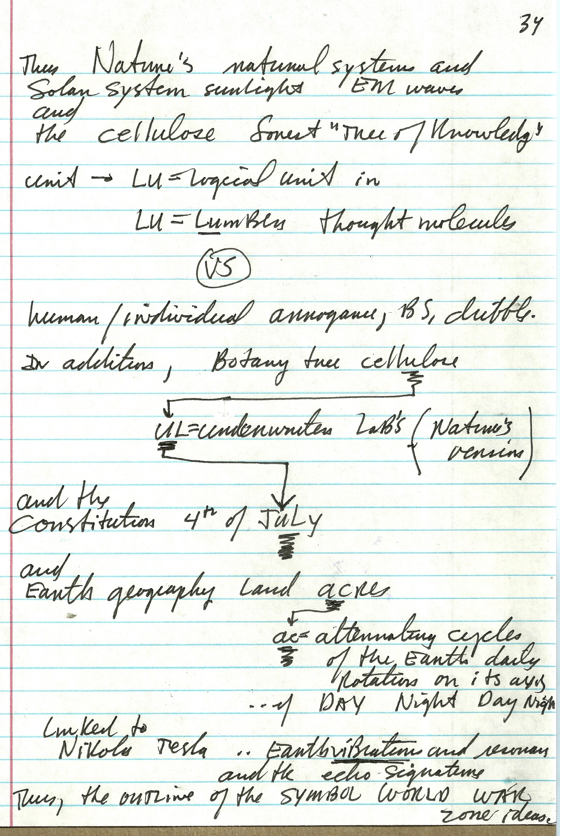 34
Thus Nature's natural systems and
Solar System sunlight EM waves
and
the cellulose forest "Tree of Knowledg"
unit → LU = logical unit in
LU = Lumbers thought molecules
VS
human / individual arrogance, BS, dribble.
In addition, Botany tree cellulose
UL = underwriters LaB's (Nature's version)
and the
Constitution 4th of JULy
and
Earth geography Land acres
ac = alternating cycles
of the Earth daily
Rotation on its axis
... of DAY Night Day Night
linked to
Nikola Tesla .. Earth vibrations and resonan
and the echo-signature
Thus, the outline of the SYMBOL WORLD WAR
zone ideas